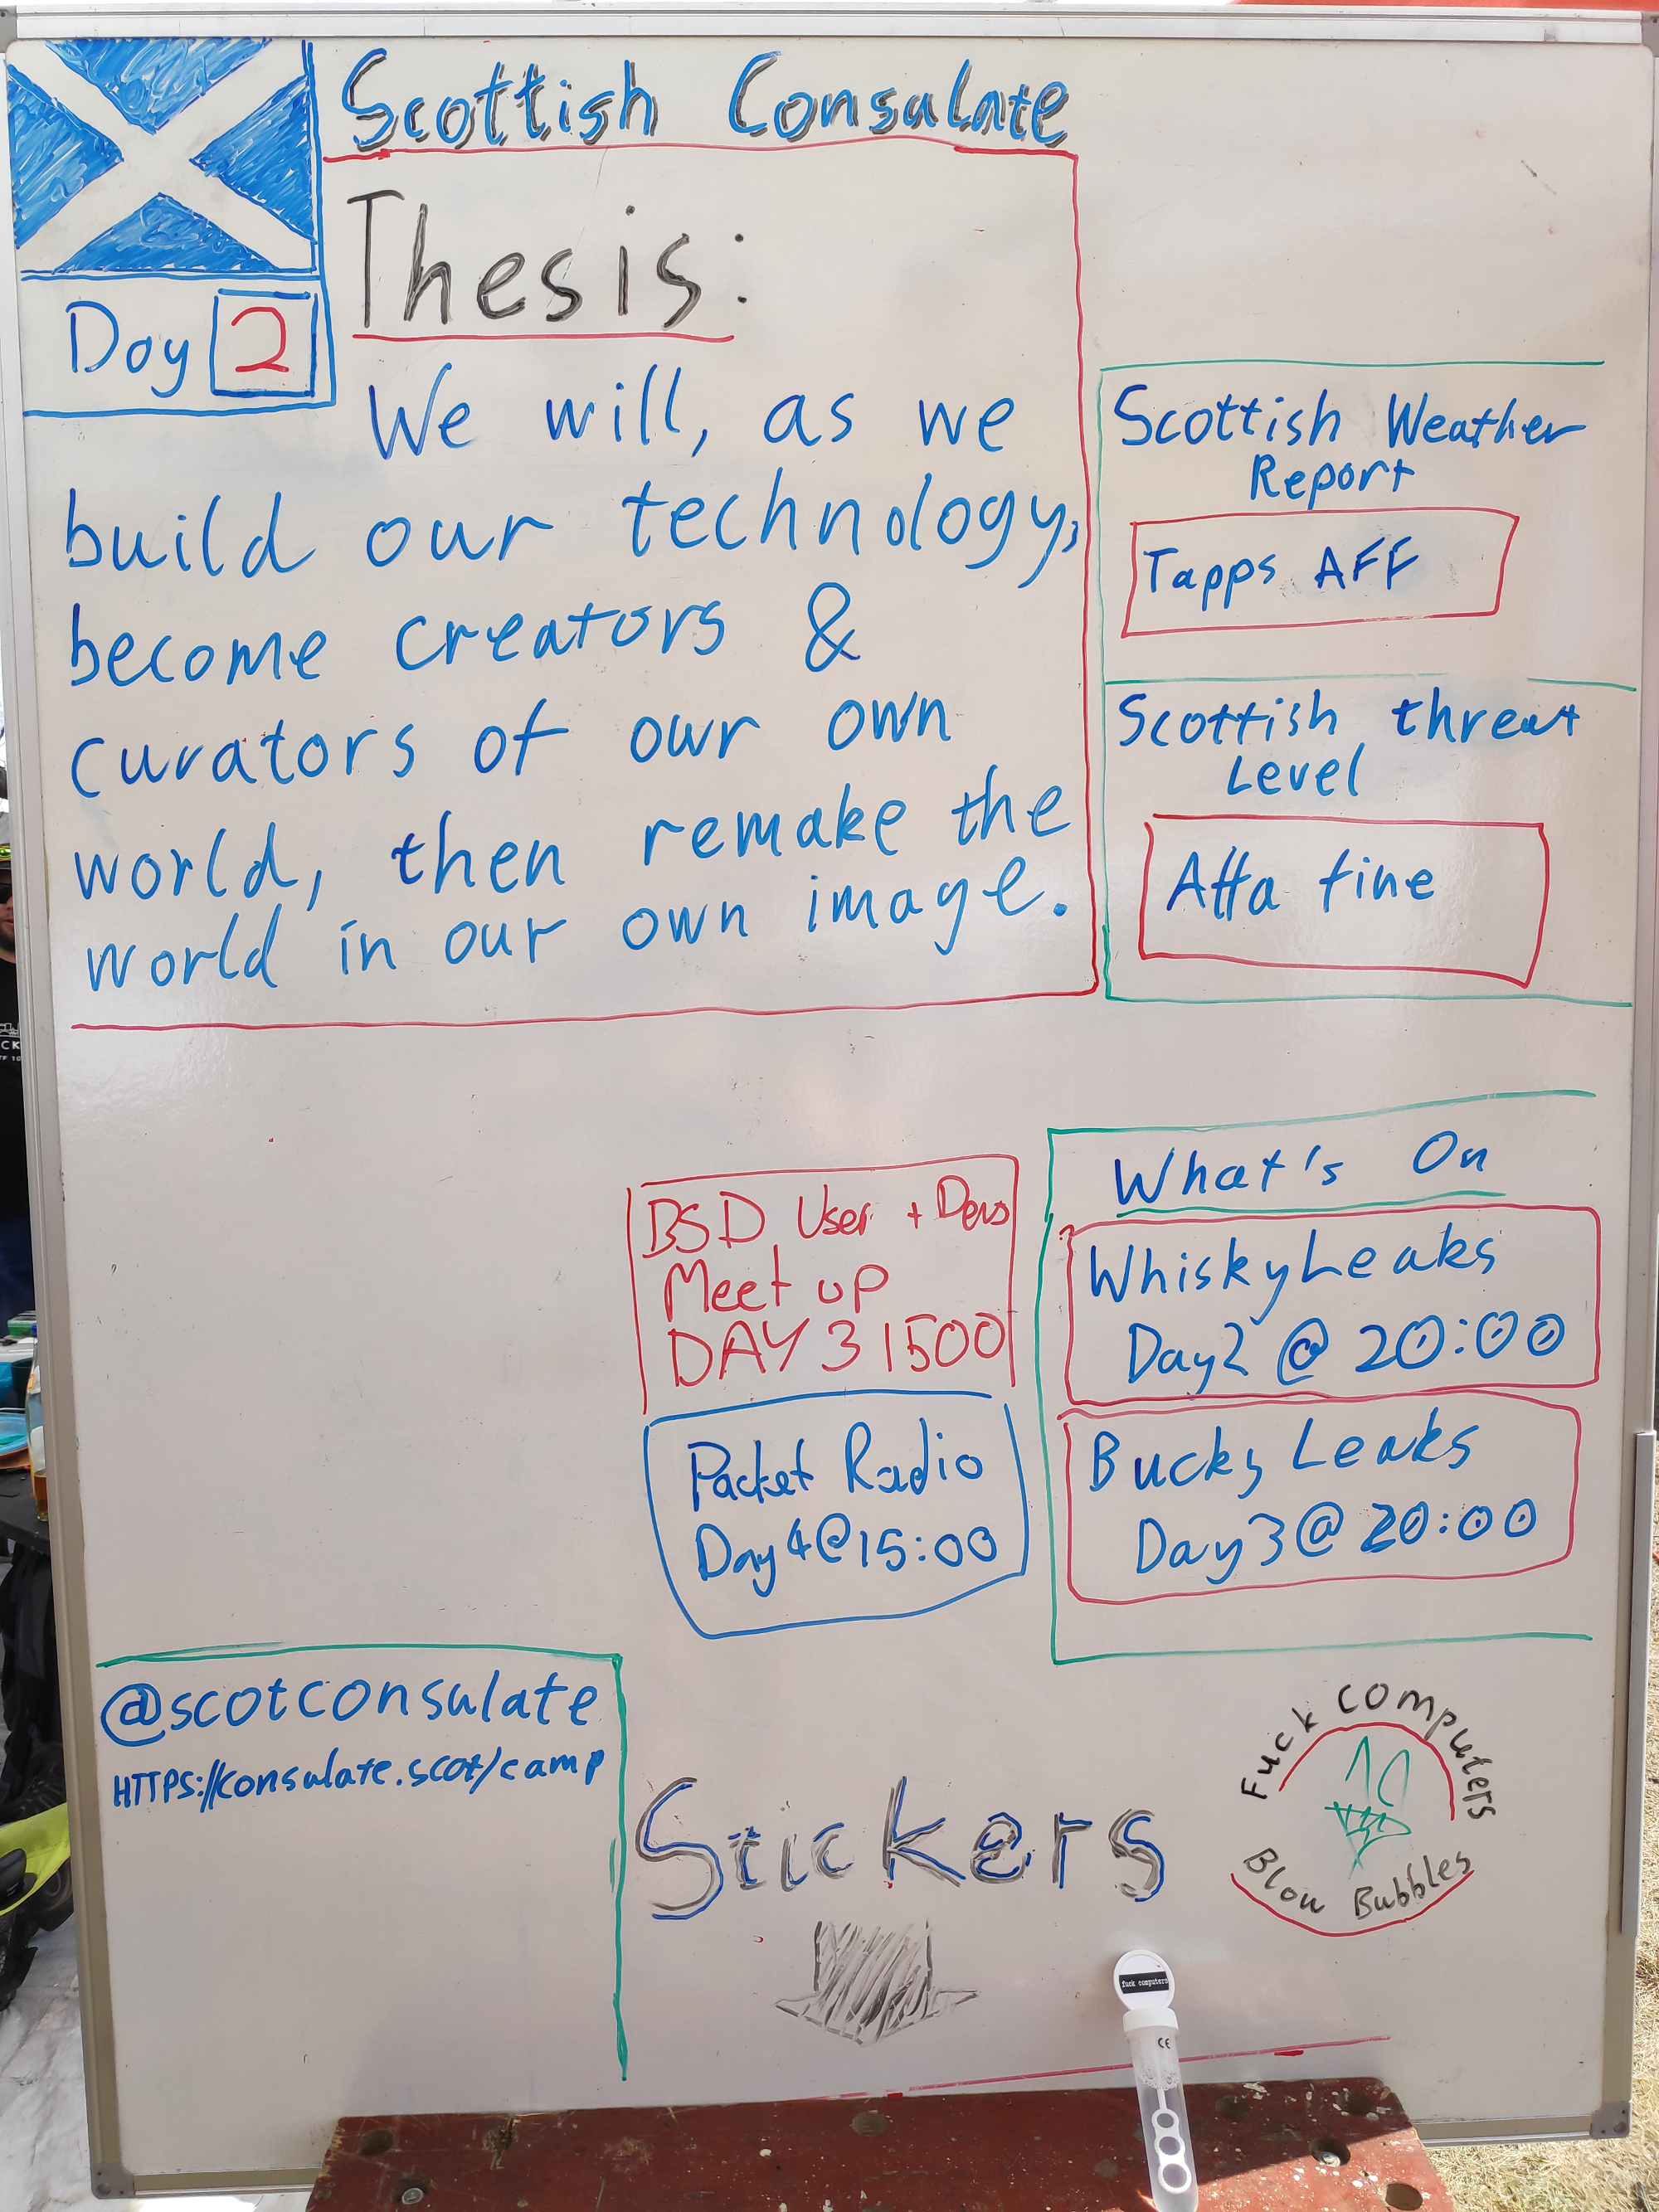 Scottish Consulate
Day 2
Thesis:
We will, as we
build our technology,
become creators &
curators of our own
world, then remake the
world in our own image.
Scottish Weather
Report
Tapps AFF
Scottish threat
Level
Affa fine
What's On
WhiskyLeaks
Day2 @ 20:00
Bucky Leaks
Day3@ 20:00
BSD User + Devs
Meet up
DAY 3 1500
Packet Radio
Day4@15:00
@scotconsulate
HTTPS://consulate.scot/camp
Stickers
Fuck computers
Blow Bubbles
fuck computers
CE